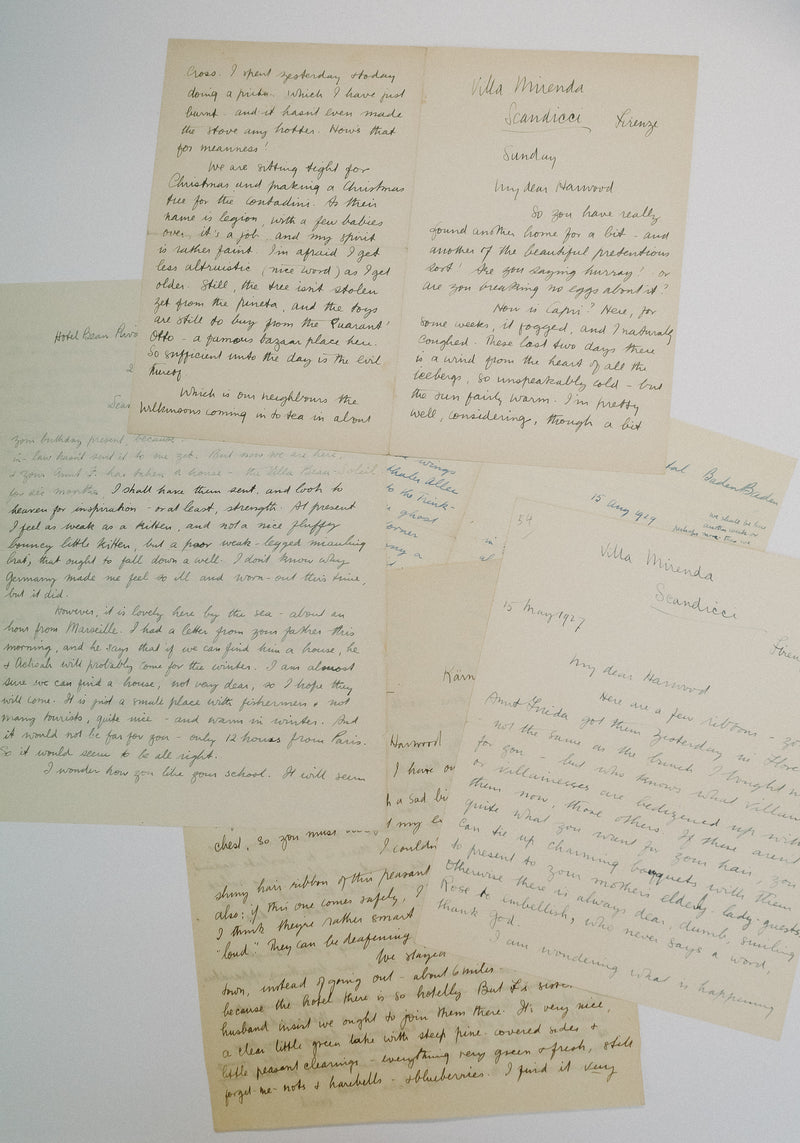 Cross. I spent yesterday & today
doing a picture which I have just
burnt - and it hasn't even made
the stove any hotter. How's that
for meanness!
We are sitting tight for
Christmas and making a Christmas
tree for the contadini. As their
name is legion, with a few babies
over, it's a job, and my spirit
is rather faint. I'm afraid I get
less altruistic (nice word) as I get
older. Still, the tree isn't stolen
yet from the pineta, and the toys
are still to buy from the Quarant'
Otto - a famous bazaar place here.
So sufficient unto the day is the evil
thereof.
Which is our neighbours the
Wilkinsons coming in to tea in about
Villa Mirenda
Scandicci Firenze
Sunday
My dear Harwood
So you have really
found another home for a bit - and
another of the beautiful pretentious
sort! Are you saying hurray! or
are you breaking no eggs about it?
How is Capri? Here, for
some weeks, it fogged, and I naturally
coughed. These last two days there
is a wind from the heart of all the
icebergs, so unspeakably cold - but
the sun fairly warm. I'm pretty
well, considering, though a bit
Hotel Beau Riv
2
your birthday present, because
in-law hasn't sent it to me yet. But now we are here,
& your Aunt F. has taken a house - the Villa Beau-Soleil
for six months, I shall have them sent, and look to
heaven for inspiration - or at least, strength. At present
I feel as weak as a kitten, and not a nice fluffy
bouncy little kitten, but a poor weak-legged miauling
brat, that ought to fall down a well. I don't know why
Germany made me feel so ill and worn-out this time,
but it did.
However, it is lovely here by the sea - about an
hour from Marseille. I had a letter from your father this
morning, and he says that if we can find him a house, he
& Achsah will probably come for the winter. I am almost
sure we can find a house, not very dear, so I hope they
will come. It is just a small place with fishermen & not
many tourists, quite nice - and warm in winter. And
it would not be far for you - only 12 hours from Paris.
So it would seem to be all right.
I wonder how you like your school. It will seem
wings
Allen
to the Trink-
ghost
corner
BadenBaden
15 Aug 1929
we shall be here
another week or
54
Villa Mirenda
Scandicci
15 May 1927
My dear Harwood
Here are a few ribbons - yo
Aunt Frieda got them yesterday in Flore
- not the same as the bunch I bought
for you - but who knows what villain
or villainesses are bedizened up with
them now, those others. If these aren't
quite what you want for your hair, you
can tie up charming bouquets with them
to present to your mothers elderly-lady-guests
Otherwise there is always dear, dumb, smiling
Rose to embellish, who never says a word,
thank God.
I am wondering what is happening
Kärn
Harwood
I have
a sad
chest, so you must
my
I couldn
shiny hair ribbon of this peasant
also: if this one comes safely, I
I think they're rather smart
"loud". They can be deafening
We stayed
town, instead of going out - about 6 miles
because the hotel there is so hotelly. But F's sister
husband insist we ought to join them there. It's very nice,
a clear little green lake with steep pine-covered sides &
little peasant clearings - everything very green & fresh, still
forget-me-nots & harebells - & blueberries. I find it very